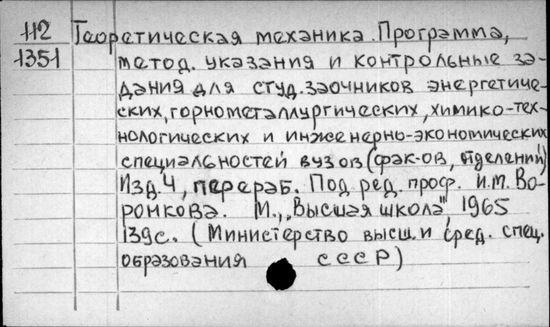 112 Теоретическая механика. Программа,
1351 метод. указания и контрольные за-
дания для студ. заочников энергетиче-
ских, горнометаллургических, химико-тех-
нологических и инженерно-экономических
специальностей вузов (фак-ов, отделений)
Изд. 4, перераб. Под ред. проф. И.М. Во-
ронкова. М., „Высшая школа", 1965
139с. (Министерство высш. и сред. спец.
образования СССР)